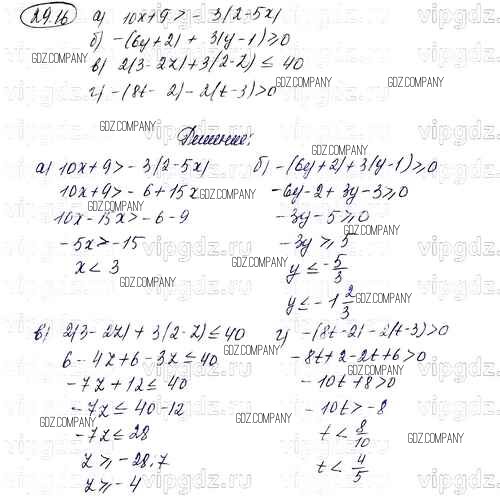 29.16 а) 10x+9 > -3(2-5x)
б) -(6y+2)+3(y-1)≥0
в) 2(3-2z)+3(2-z) ≤ 40
г) -(8t-2)-2(t-3)>0
Решение:
а) 10x+9>-3(2-5x)
10x+9>-6+15x
10x-15x>-6-9
-5x>-15
x<3
б) -(6y+2)+3(y-1)≥0
-6y-2+3y-3≥0
-3y-5≥0
-3y≥5
y≤-5/3
y≤-1 2/3
в) 2(3-2z)+3(2-z)≤40
6-4z+6-3z≤40
-7z+12≤40
-7z≤40-12
-7z≤28
z≥-28:7
z≥-4
г) -(8t-2)-2(t-3)>0
-8t+2-2t+6>0
-10t+8>0
-10t>-8
t<8/10
t<4/5